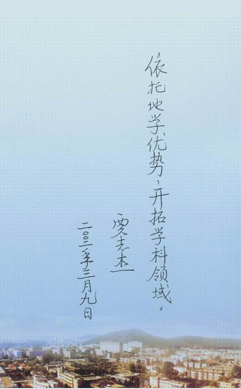 依托地学优势，开拓学科领域。
贾志杰
二〇〇二年三月九日